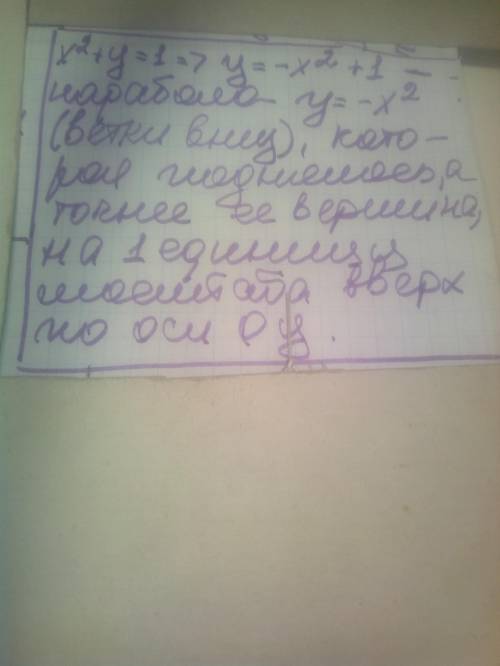 x²+y=1 => y=-x²+1 —
парабола y=-x²
(ветки вниз), кото-
рая поднялась, а
точнее ее вершина,
на 1 единицу
масштаба вверх
по оси Oy.